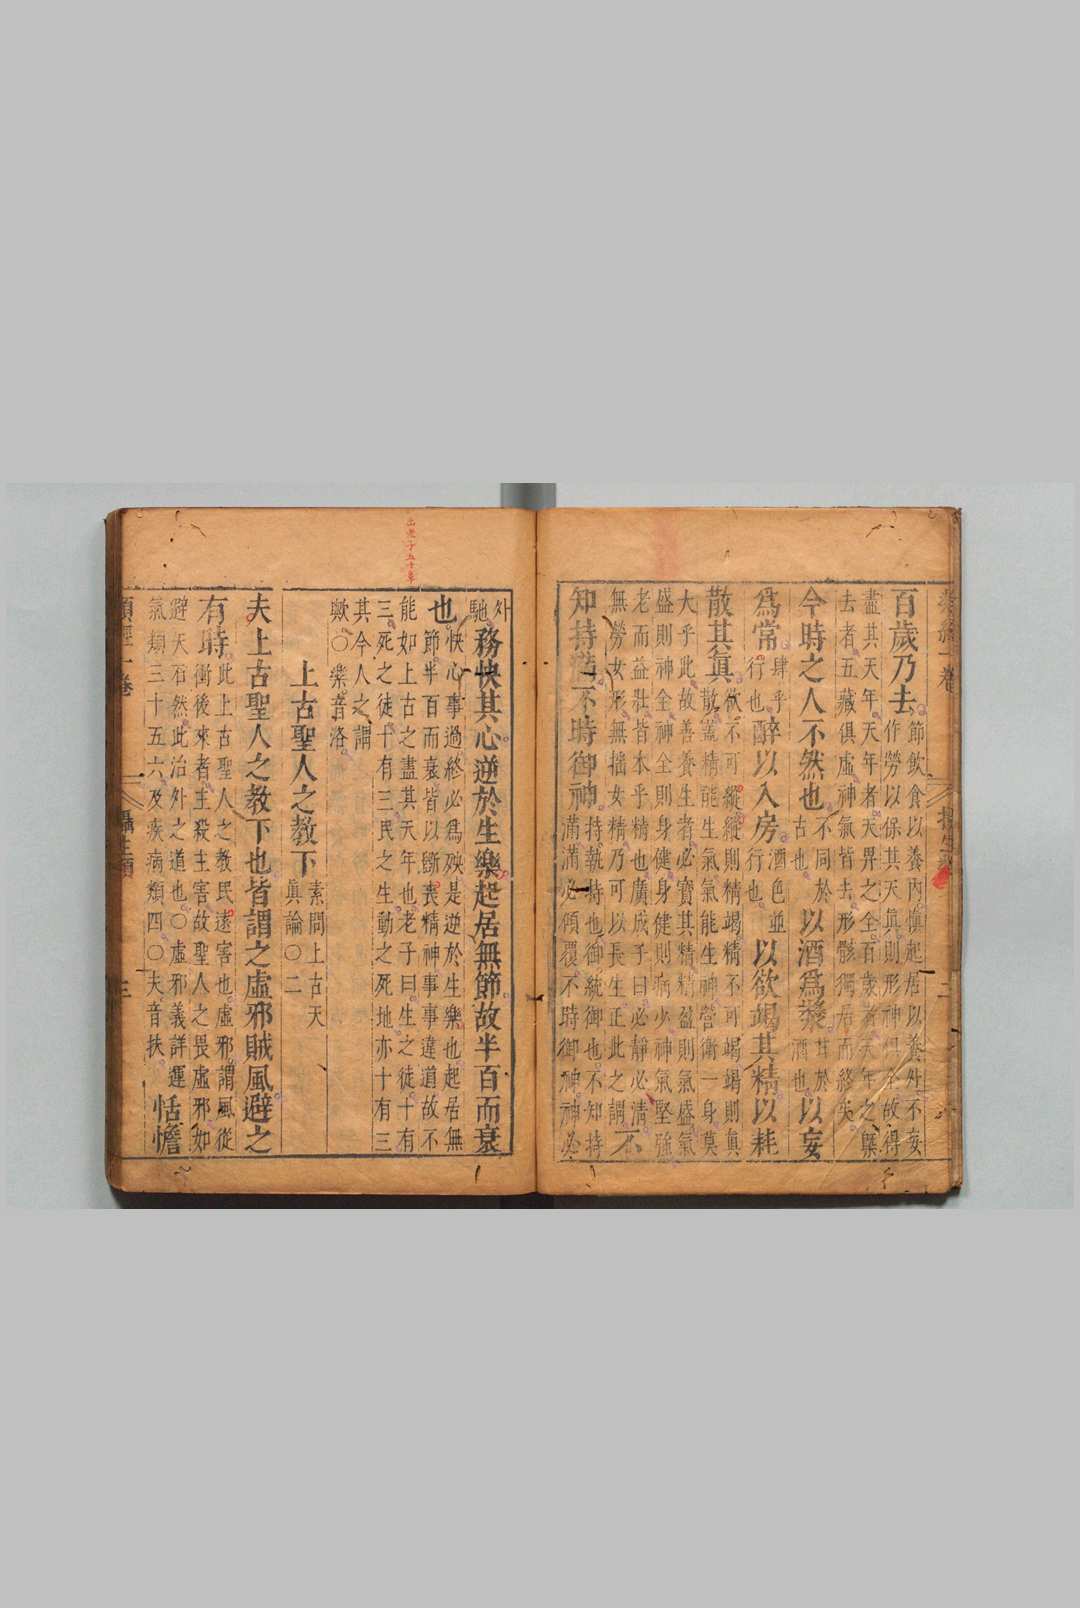 類經一卷
攝生類
二
百歲乃去節飲食以養內慎起居以養外不妄
作勞以保其天眞則形神俱全故得
盡其天年天年者天畀之全百歲者天年之槩
去者五藏俱虛神氣皆去形骸獨居而終矣
今時之人不然也不同於古也以酒爲漿甚於酒也以妄
爲常肆乎行也醉以入房酒色並行也以欲竭其精以耗
散其眞欲不可縱縱則精竭精不可竭竭則眞
散蓋精能生氣氣能生神營衛一身莫
大乎此故善養生者必寶其精精盈則氣盛氣
盛則神全神全則身健身健則病少神氣堅強
老而益壯皆本乎精也廣成子曰必靜必清
無勞女形無搖女精乃可以長生正此之謂不
知持滿不時御神持執持也御統御也不知持
滿滿必傾覆不時御神神必
出老子五十章
外馳務快其心逆於生樂起居無節故半百而衰
也快心事過終必爲殃是逆於生樂也起居無
節半百而衰皆以斲喪精神事事違道故不
能如上古之盡其天年也老子曰生之徒十有
三死之徒十有三民之生動之死地亦十有三
其今人之謂
歟○樂音洛
上古聖人之教下素問上古天眞論○二
夫上古聖人之教下也皆謂之虛邪賊風避之
有時此上古聖人之教民遠害也虛邪謂風從
衝後來者主殺主害故聖人之畏虛邪如
避矢石然此治外之道也○虛邪義詳運
氣類三十五六及疾病類四○夫音扶恬憺
類經一卷
攝生類
三